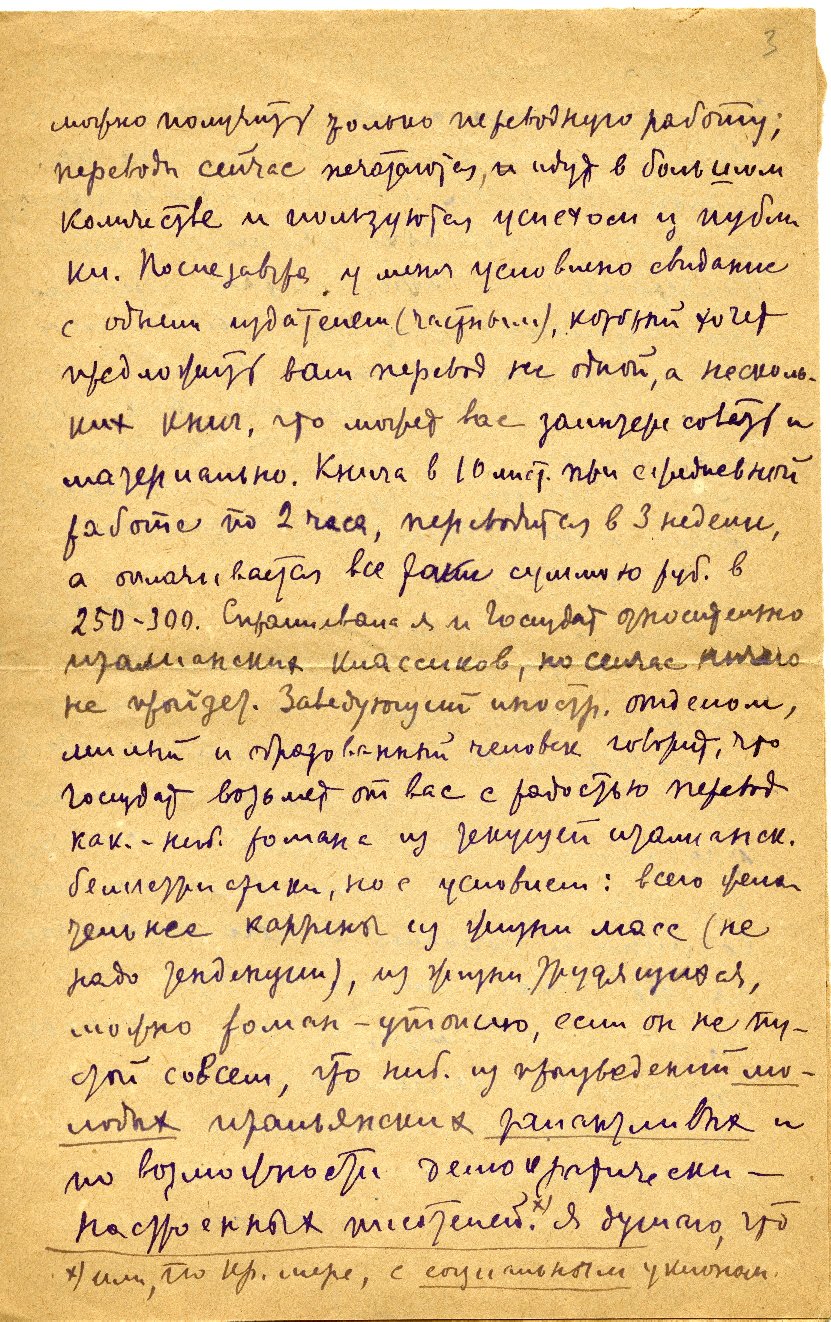 3
можно получить только переводную работу;
переводы сейчас печатаются, и идут в большом
количестве и пользуются успехом из публи
ки. Послезавтра у меня условлено свидание
с одним издателем (частным), который хочет
предложить вам перевод не одной, а несколь-
ких книг, что может вас заинтересовать и
материально. Книга в 10 лист. при ежедневной
работе по 2 часа, переводится в 3 недели,
а оплачивается все суммою руб. в
250-300. Спрашивала я и Госиздат относительно
итальянских классиков, но сейчас ничего
не пройдет. Заведующий иностр. отделом,
милый и образованный человек говорит, что
Госиздат возьмет от вас с радостью перевод
как.-ниб. романа из текущей итальянск.
беллетристики, но с условием: всего жела
тельнее картины из жизни масс (не
надо тенденции), из жизни трудящихся,
можно роман-утопию, если он не пу-
стой совсем, что ниб. из произведений мо-
лодых итальянских талантливых и
по возможности демократически-
настроенных писателей.x) Я думаю, что
x) или, по кр. мере, с социальным уклоном.